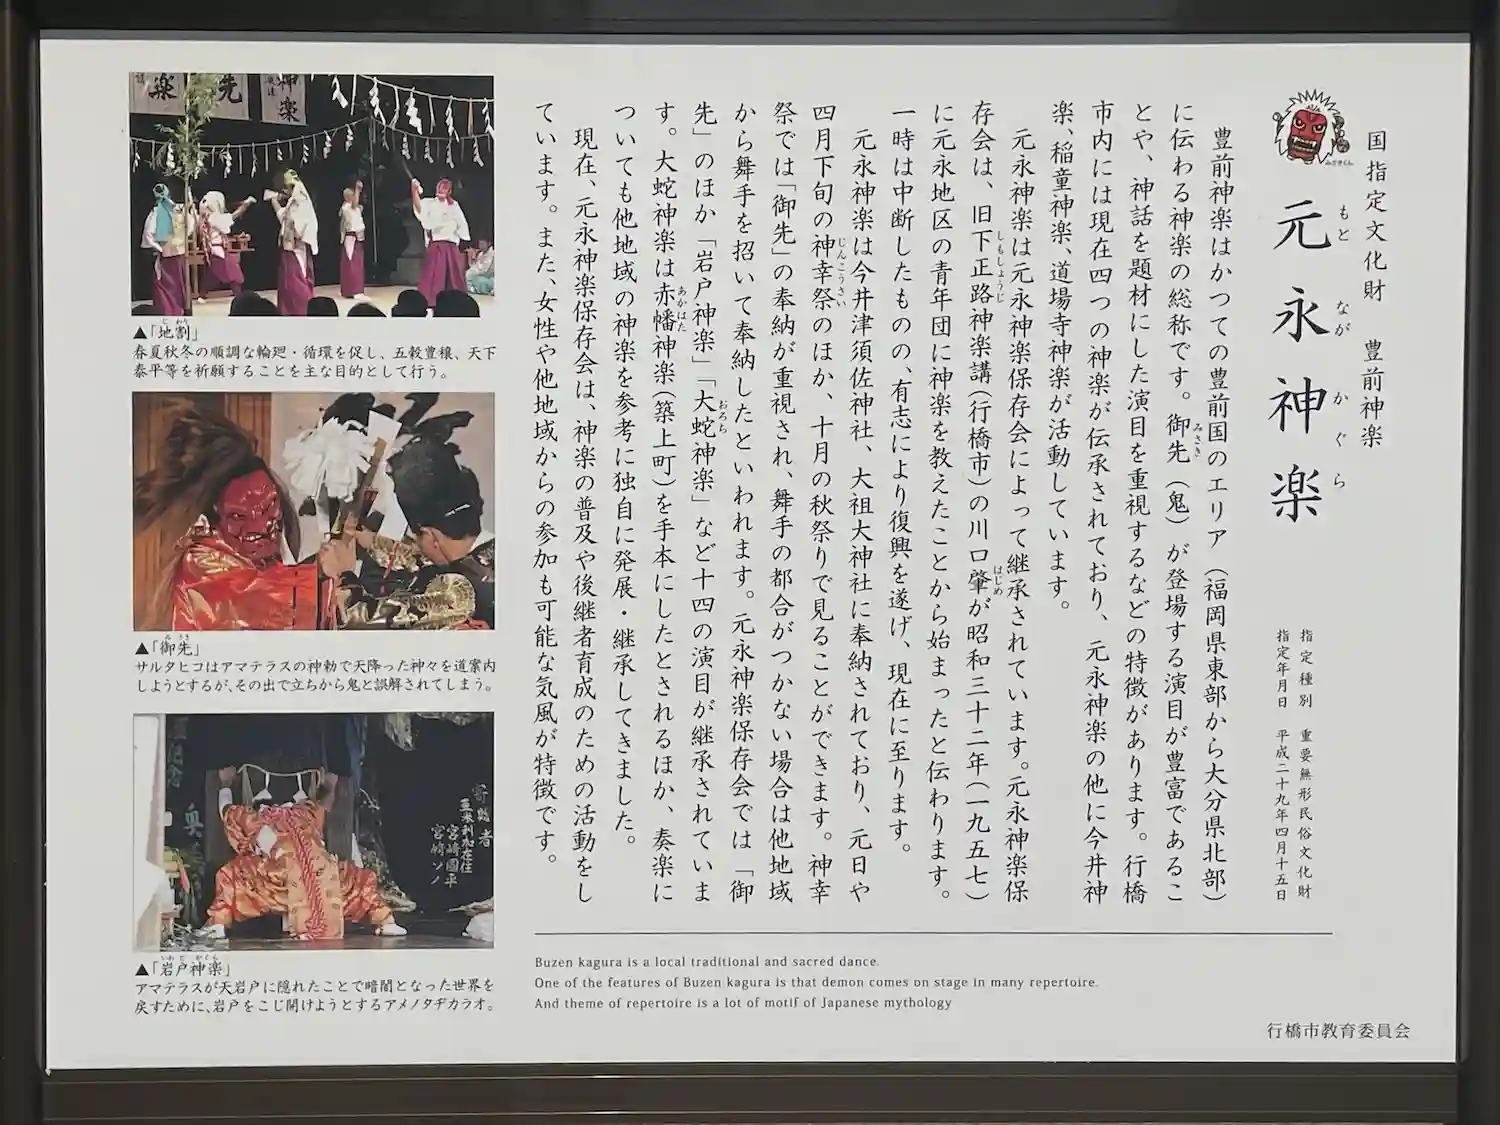 国指定文化財　豊前神楽
元永神楽
もと　なが　かぐら
みさきくん
指定種別　重要無形民俗文化財
指定年月日　平成二十九年四月十五日
豊前神楽はかつての豊前国のエリア（福岡県東部から大分県北部）
に伝わる神楽の総称です。御先（鬼）が登場する演目が豊富であるこ
みさき
とや、神話を題材にした演目を重視するなどの特徴があります。行橋
市内には現在四つの神楽が伝承されており、元永神楽の他に今井神
楽、稲童神楽、道場寺神楽が活動しています。
元永神楽は元永神楽保存会によって継承されています。元永神楽保
存会は、旧下正路神楽講（行橋市）の川口肇が昭和三十二年（一九五七）
しもしょうじ　はじめ
に元永地区の青年団に神楽を教えたことから始まったと伝わります。
一時は中断したものの、有志により復興を遂げ、現在に至ります。
元永神楽は今井津須佐神社、大祖大神社に奉納されており、元日や
四月下旬の神幸祭のほか、十月の秋祭りで見ることができます。神幸
じんこうさい
祭では「御先」の奉納が重視され、舞手の都合がつかない場合は他地域
から舞手を招いて奉納したといわれます。元永神楽保存会では「御
先」のほか「岩戸神楽」「大蛇神楽」など十四の演目が継承されていま
おろち
す。大蛇神楽は赤幡神楽（築上町）を手本にしたとされるほか、奏楽に
あかはた
ついても他地域の神楽を参考に独自に発展・継承してきました。
現在、元永神楽保存会は、神楽の普及や後継者育成のための活動をし
ています。また、女性や他地域からの参加も可能な気風が特徴です。
楽　先　神楽
▲「地割」
じわり
春夏秋冬の順調な輪廻・循環を促し、五穀豊穣、天下
泰平等を祈願することを主な目的として行う。
▲「御先」
みさき
サルタヒコはアマテラスの神勅で天降った神々を道案内
しようとするが、その出で立ちから鬼と誤解されてしまう。
奥
寄贈者
亜米利加在住
宮崎國平
宮崎ソノ
▲「岩戸神楽」
いわとかぐら
アマテラスが天岩戸に隠れたことで暗闇となった世界を
戻すために、岩戸をこじ開けようとするアメノタヂカラオ。
Buzen kagura is a local traditional and sacred dance.
One of the features of Buzen kagura is that demon comes on stage in many repertoire.
And theme of repertoire is a lot of motif of Japanese mythology
行橋市教育委員会